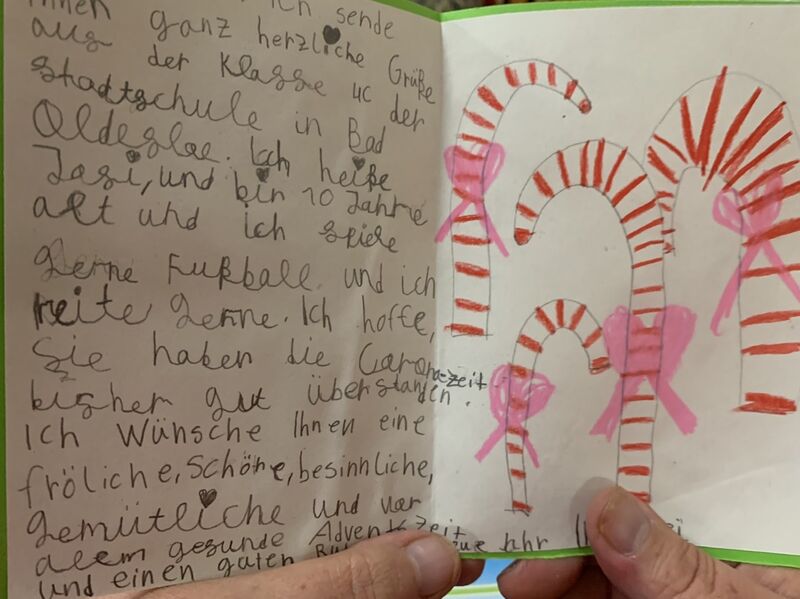 Ihnen ich sende
aus ganz herzliche Grüße
aus der Klasse 4c der
Stadtschule in Bad
Oldesloe. Ich heiße
Jasi, und bin 10 Jahre
alt und ich spiele
gerne Fußball und ich
reite gerne. Ich hoffe,
Sie haben die Coronazeit
bisher gut überstanden.
Ich Wünsche Ihnen eine
fröliche, schöne, besinnliche,
gemütliche und vor
allem gesunde Adventszeit
und einen guten